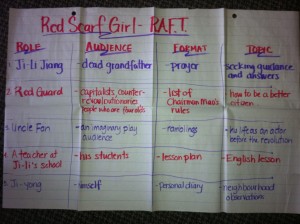 Red Scarf Girl - R.A.F.T.
ROLE AUDIENCE FORMAT TOPIC
Ji-li Jiang dead grandfather prayer seeking guidance and answers
2. Red Guard capitalists, counter-revolutionaries, people who are four olds list of Chairman Mao's rules How to be a better citizen
3. Uncle Fan an imaginary play audience ramblings his life as an actor before the revolution
4. A teacher at Ji-li's school his students lesson plan English lesson
5. Ji-yong himself personal diary neighbourhood observations